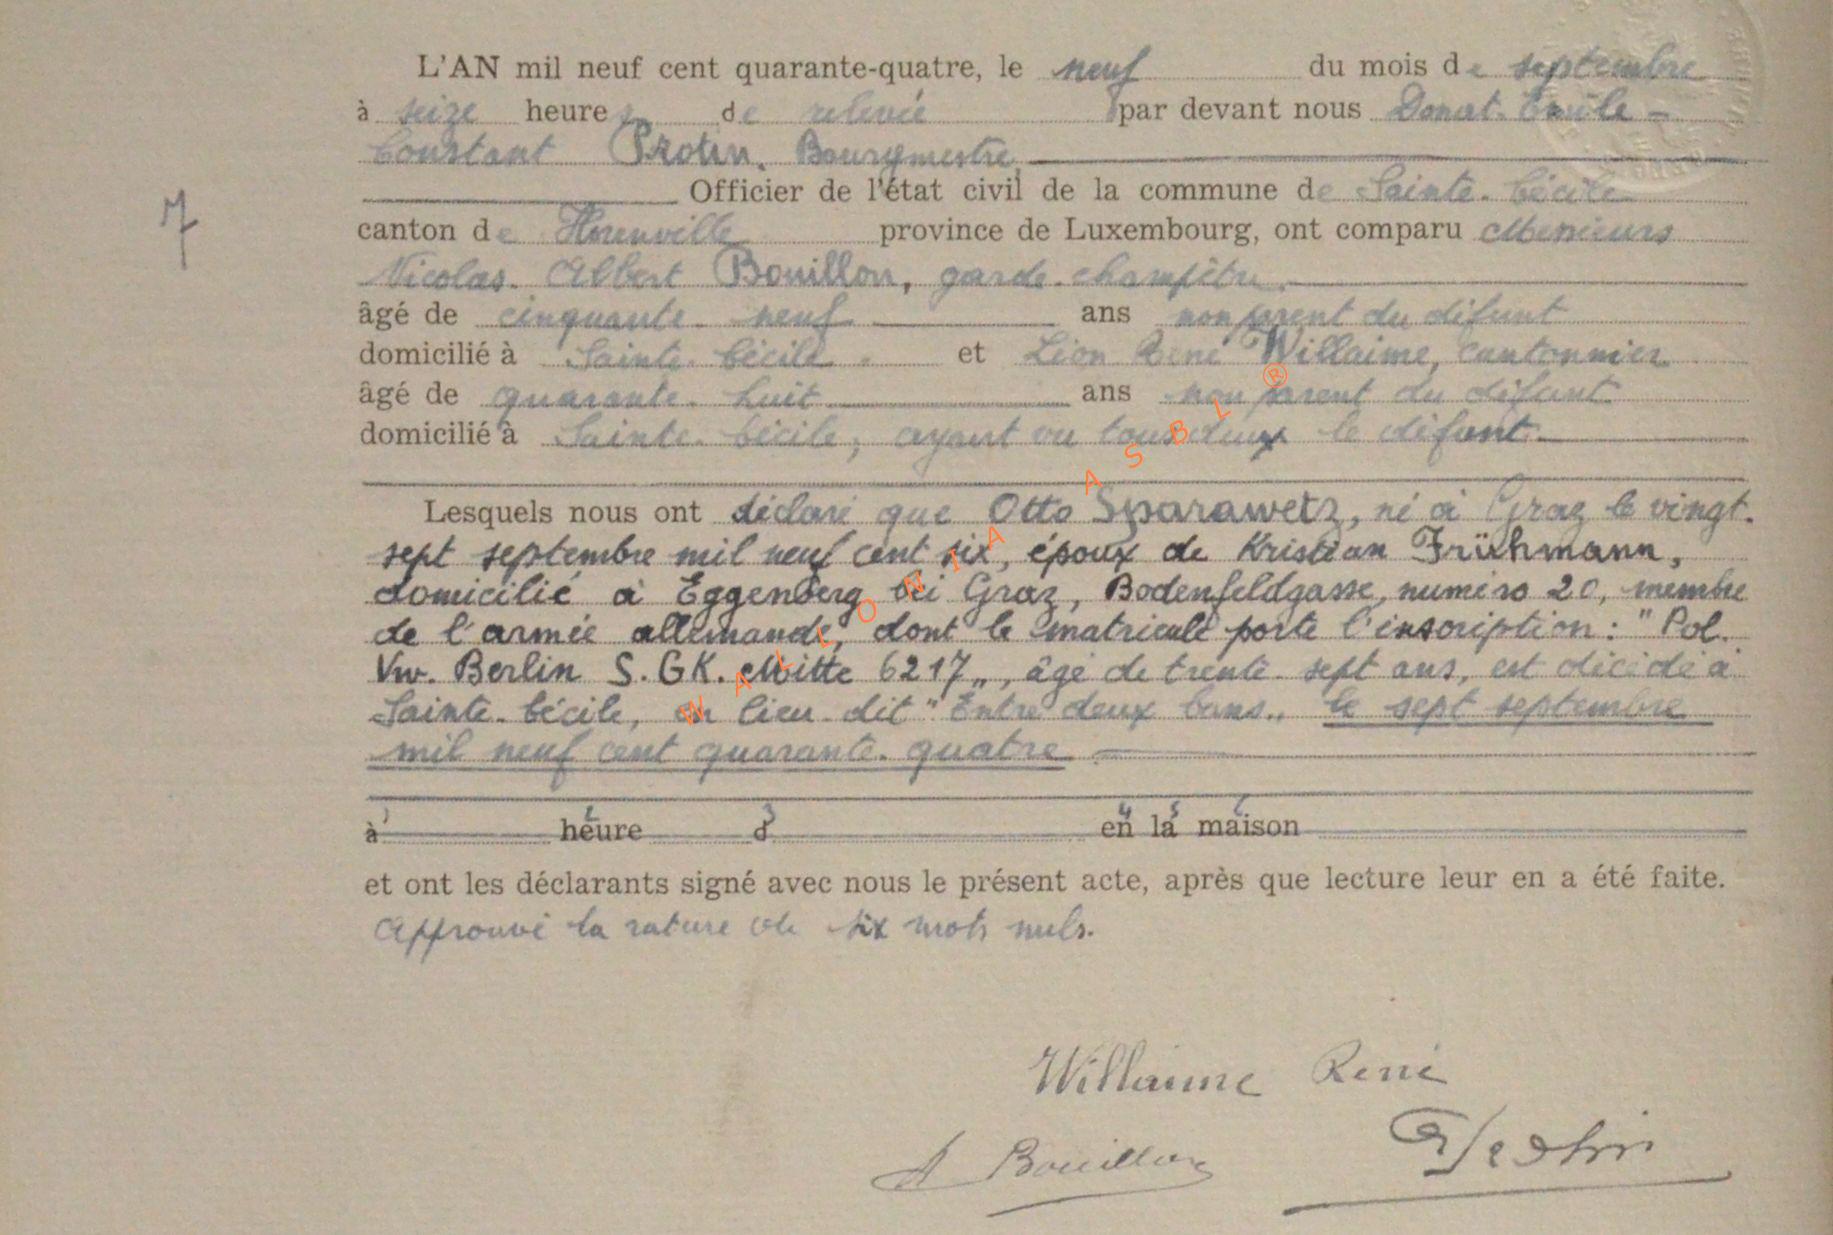 L'AN mil neuf cent quarante-quatre, le neuf du mois de septembre
à seize heures de relevée par devant nous Donat-Emile-
Constant Protin, Bourgmestre,
Officier de l'état civil de la commune de Sainte-Cécile
canton de Florenville province de Luxembourg, ont comparu Messieurs
Nicolas-Albert Bouillon, garde-champêtre,
âgé de cinquante-neuf ans non parent du défunt
domicilié à Sainte-Cécile et Léon René Willaime, cantonnier
âgé de quarante-huit ans non parent du défunt
domicilié à Sainte-Cécile, ayant vu tous deux le défunt.
Lesquels nous ont déclaré que Otto Sparawetz, né à Graz le vingt-
sept septembre mil neuf cent six, époux de Kristian Frühmann,
domicilié à Eggenberg bei Graz, Bodenfeldgasse, numéro 20, membre
de l'armée allemande, dont le matricule porte l'inscription: "Pol.
Vw. Berlin S. GK. Mitte 6217", âgé de trente-sept ans, est décédé à
Sainte-Cécile, au lieu-dit "Entre deux bans", le sept septembre
mil neuf cent quarante-quatre
1 2 3 4 5 6
à heure d en la maison
et ont les déclarants signé avec nous le présent acte, après que lecture leur en a été faite.
Approuvé la rature de six mots nuls.
Willaime René
A Bouillon
7
WALLONIA ASBL ®